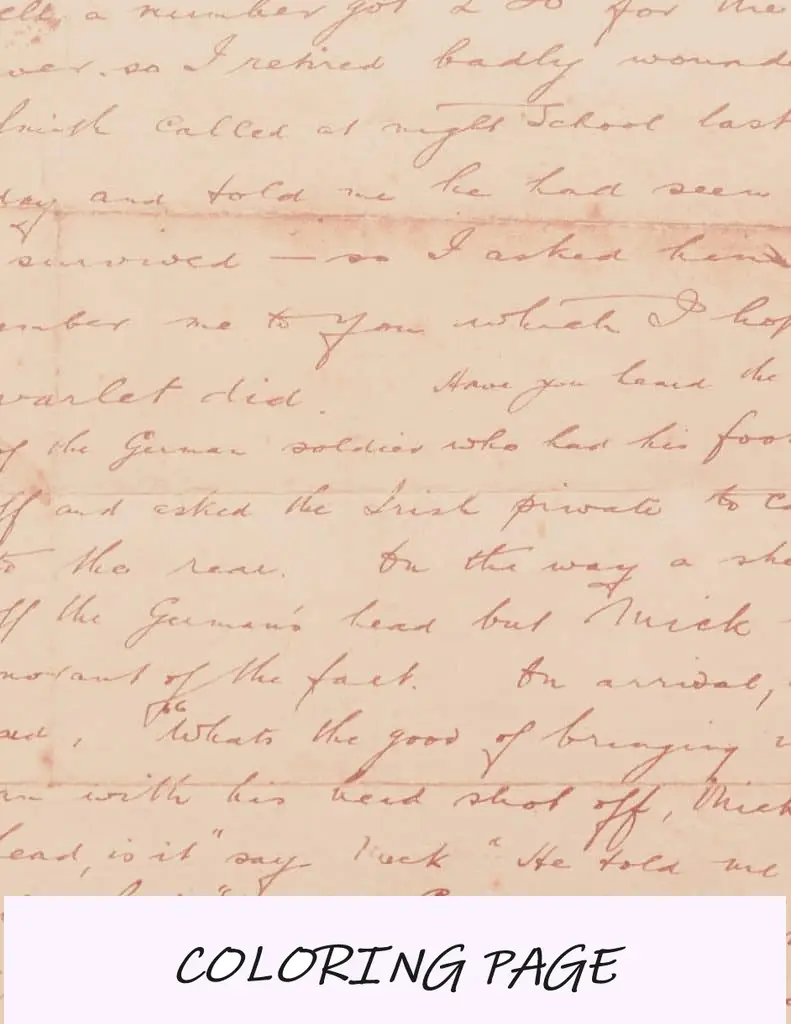 a number got 2 for the
so I retired badly wound
called at night School last
day and told me he had seen
survived — so I asked him
mber me to you which I hop
varlet did. Have you heard the
of the German soldier who had his foot
ff and asked the Irish private to ca
to the rear. On the way a she
off the German's head but Mick
norant of the fact. On arrival,
"Whats the good of bringing
with his head shot off, Mick
ead, is it" say Mick "He told me
COLORING PAGE